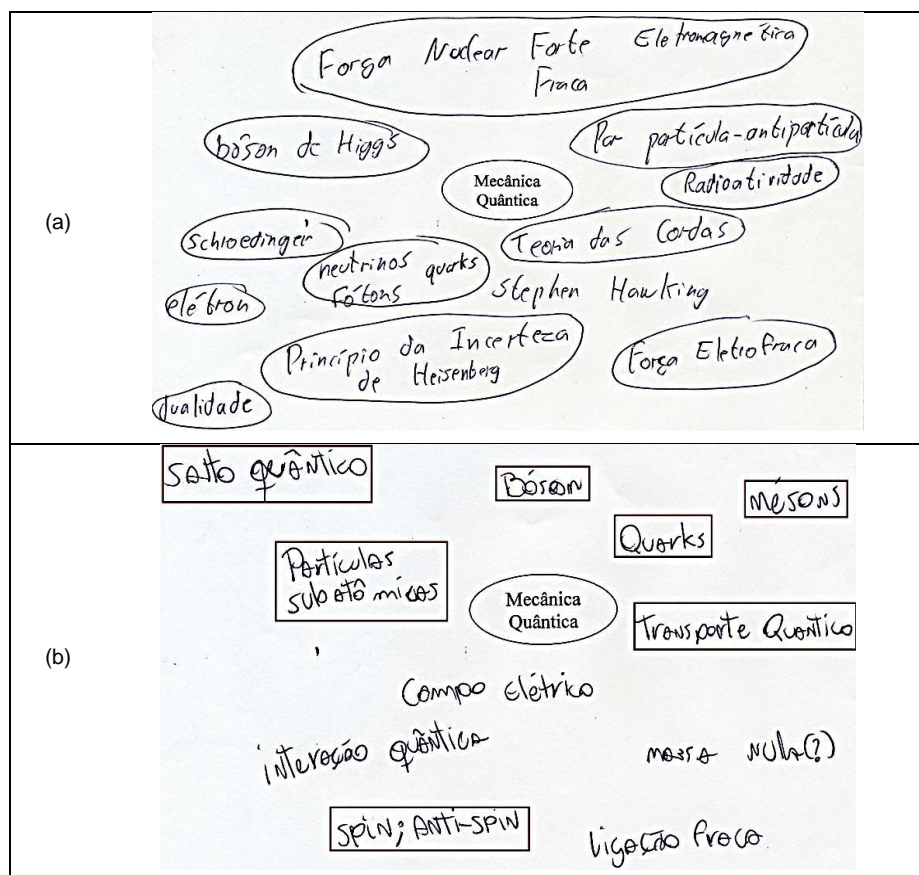 (a)
Força Nuclear Forte Eletromagnética
Fraca
bóson de Higgs
Par partícula-antipartícula
Mecânica
Quântica
Radioatividade
Schroedinger
Teoria das Cordas
neutrinos quarks
fótons
Stephen Hawking
elétron
Princípio da Incerteza
de Heisenberg
Força Eletrofraca
dualidade
(b)
Salto quântico
Bóson
Mésons
Quarks
Partículas
subatômicas
Mecânica
Quântica
Transporte Quantico
Campo Elétrico
interação quântica
massa nula(?)
Spin; Anti-spin
Ligação fraca